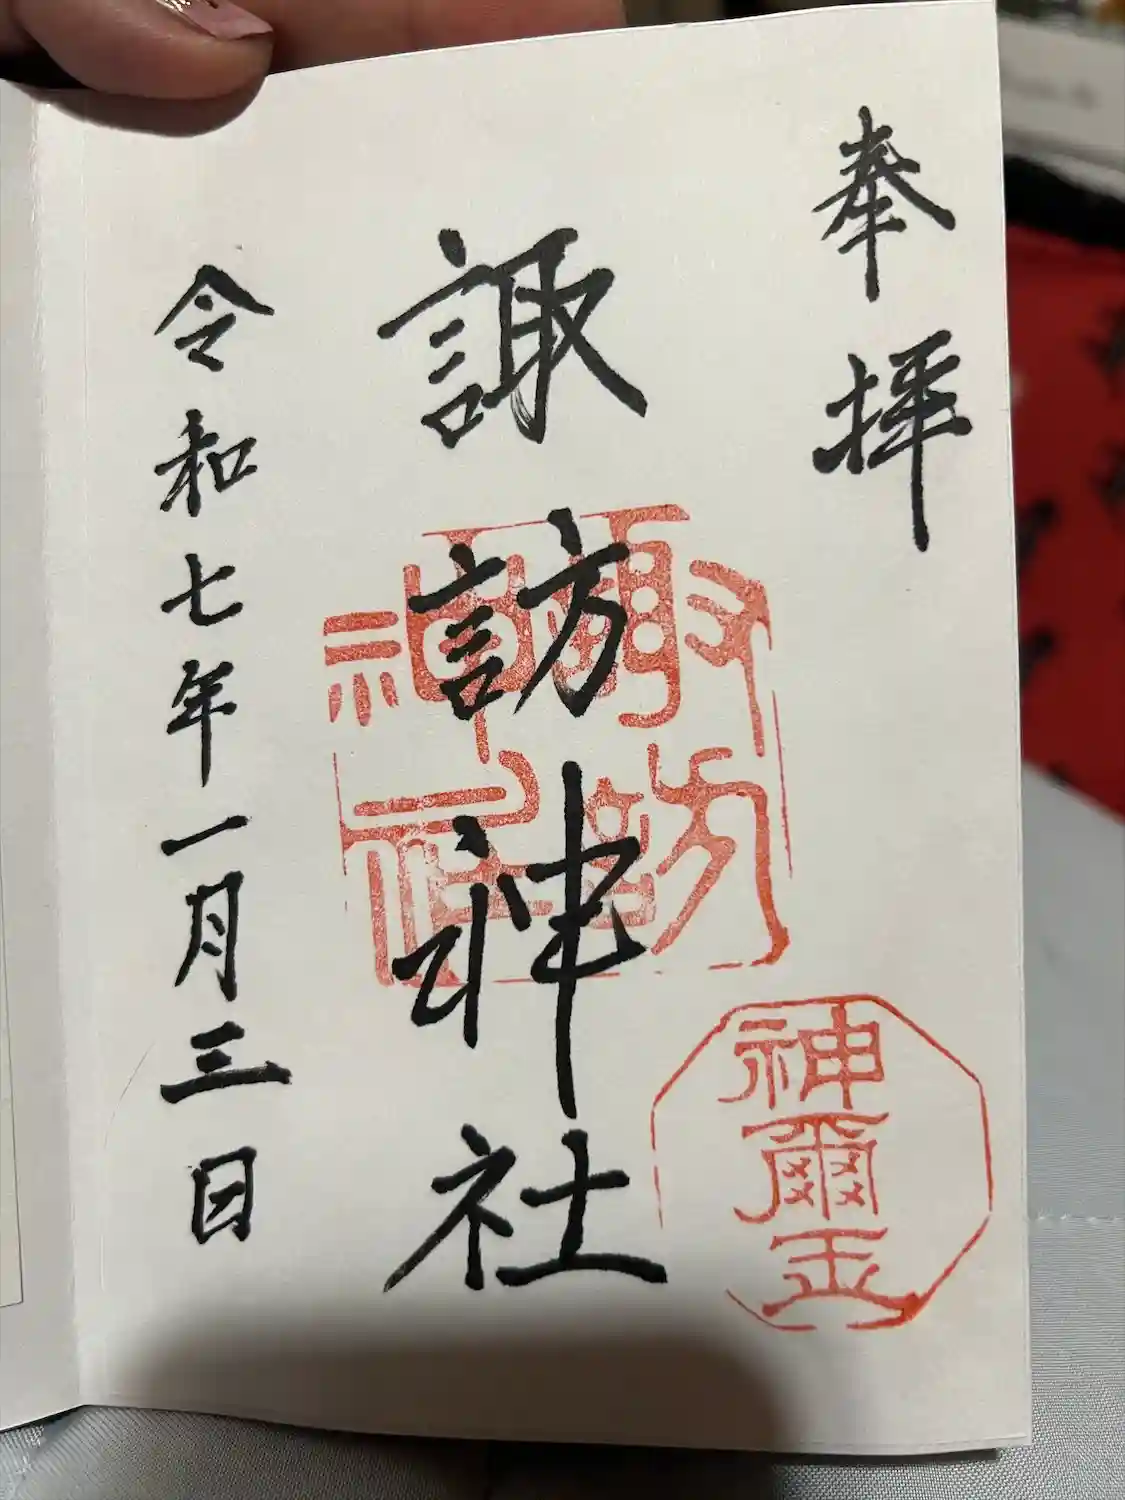 奉拝
諏訪神社
諏訪神社
神爾玉
令和七年一月三日